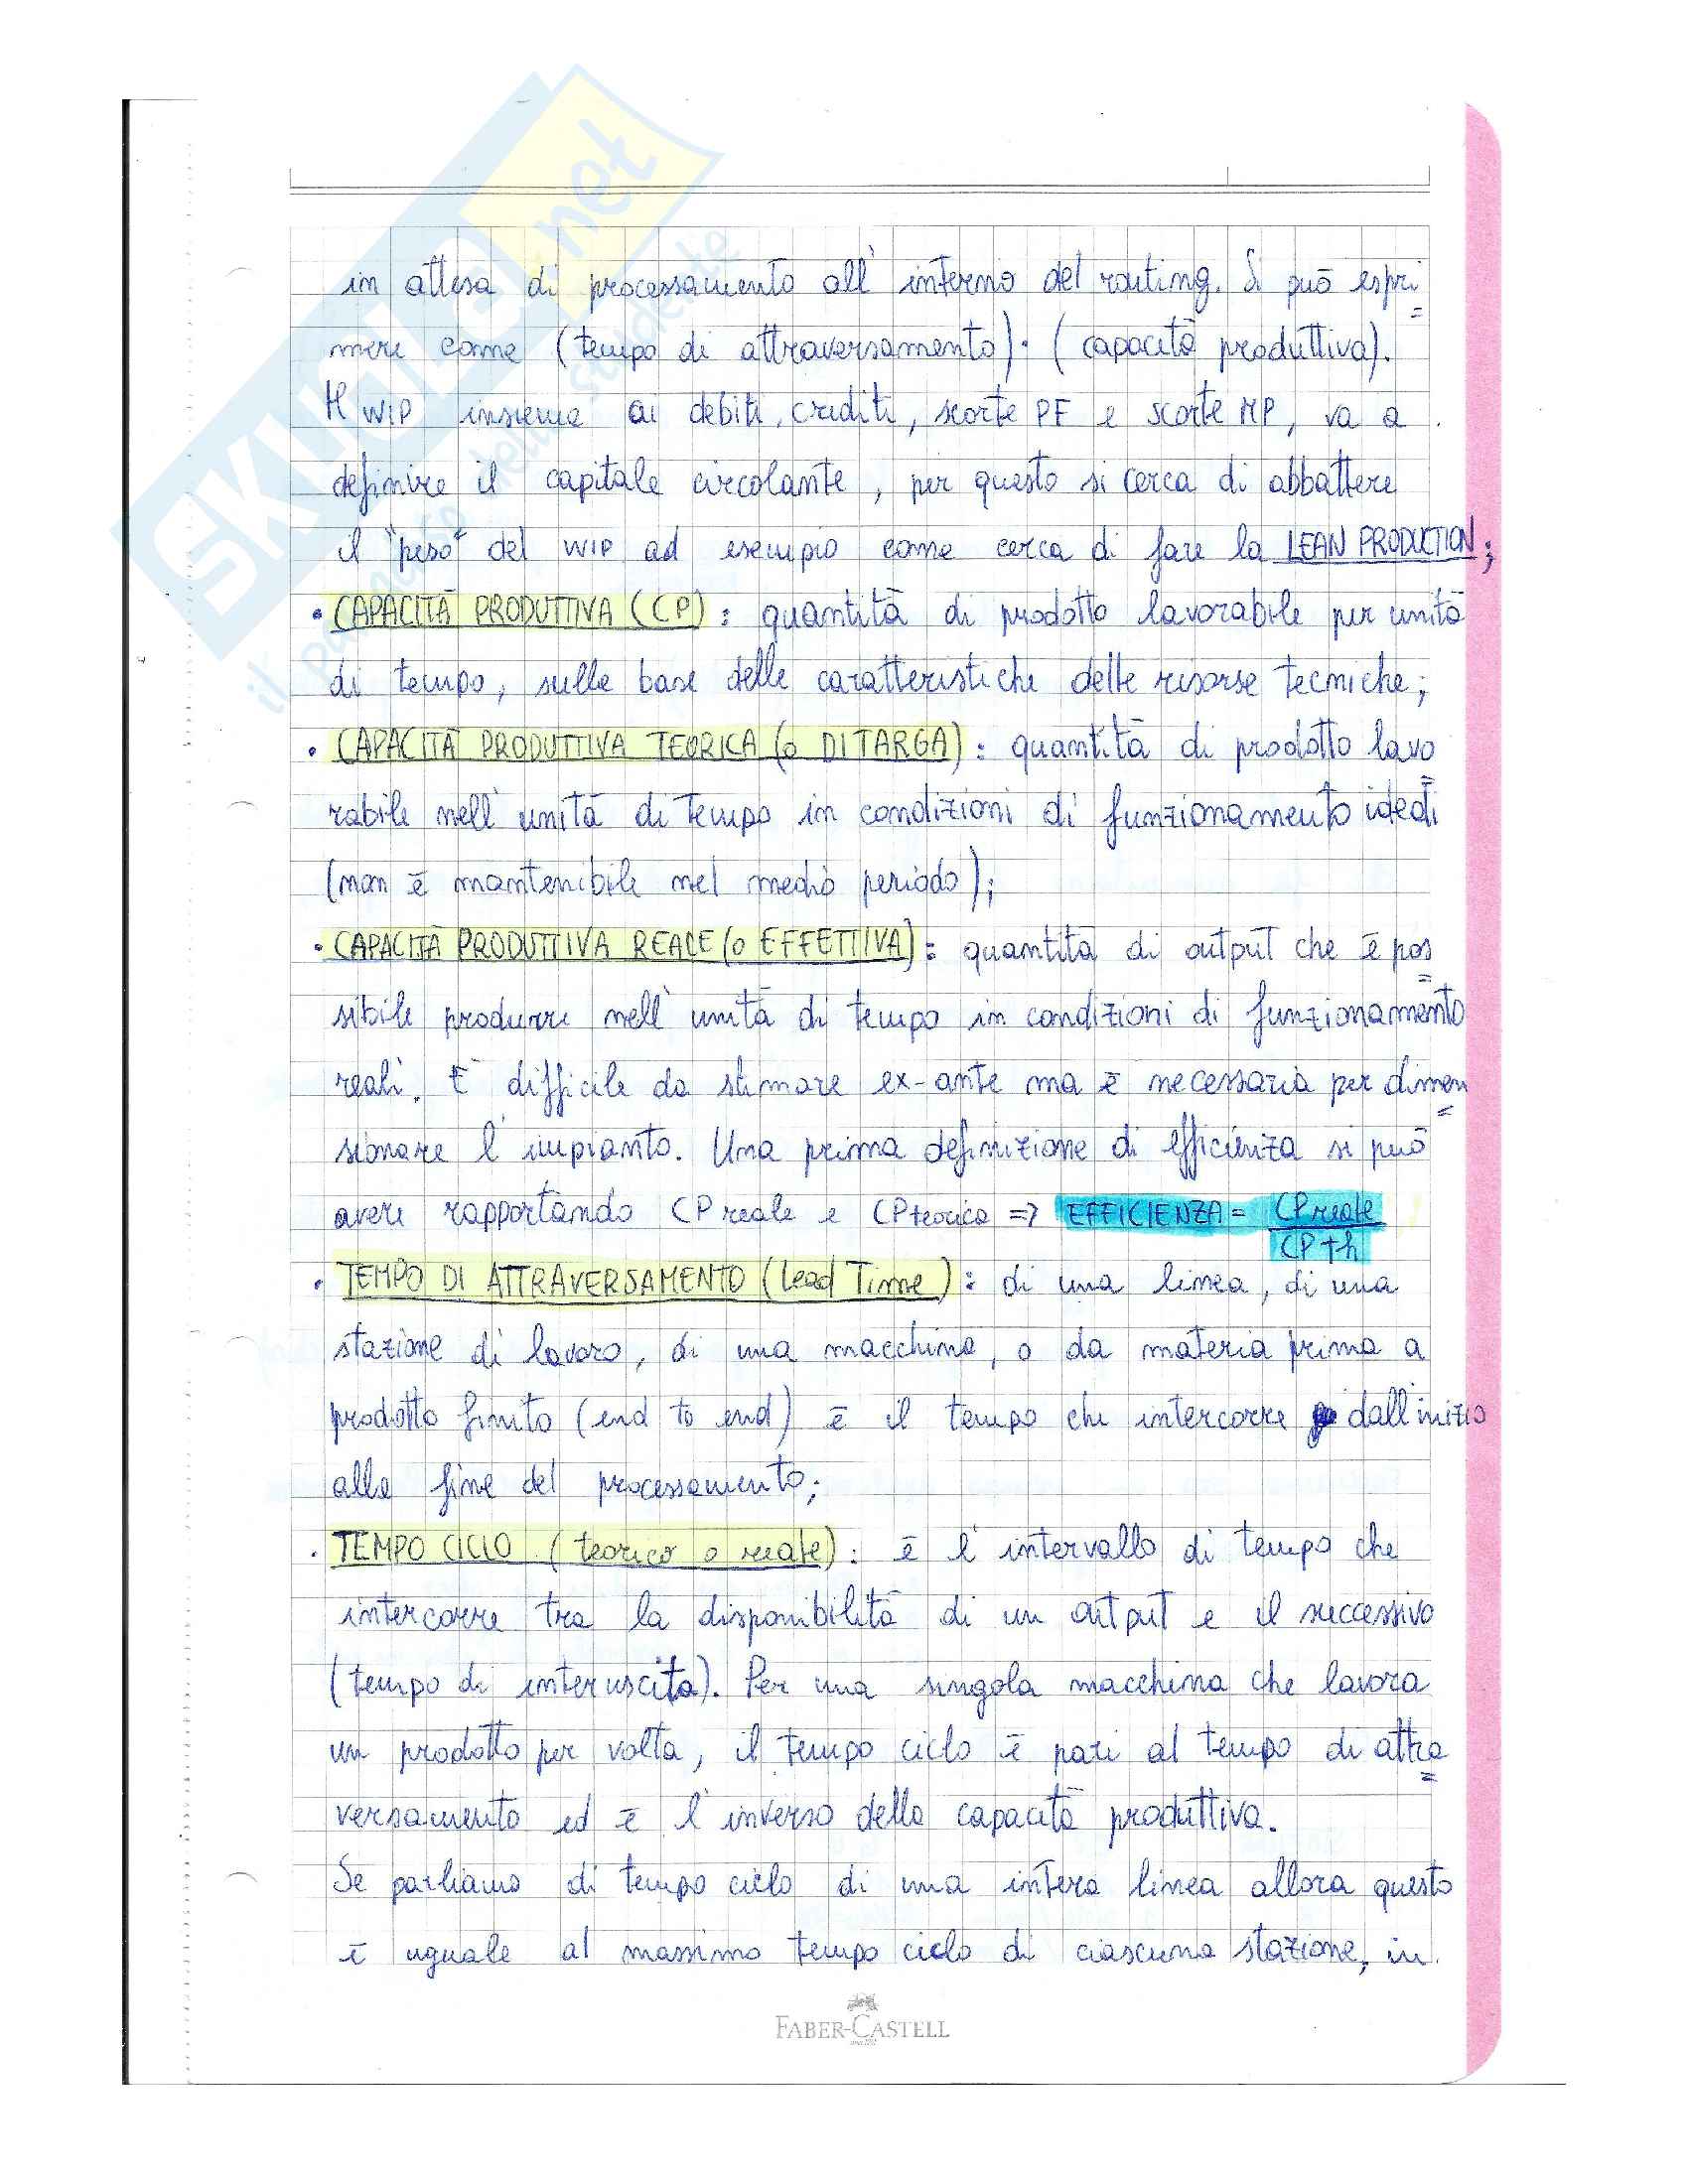 in attesa di processamento all'interno del routing. Si può espri
mere come (tempo di attraversamento)·(capacità produttiva).
Il WIP insieme ai debiti, crediti, scorte PF e scorte MP, va a
definire il capitale circolante, per questo si cerca di abbattere
il "peso" del WIP ad esempio come cerca di fare la LEAN PRODUCTION;
• CAPACITÀ PRODUTTIVA (CP): quantità di prodotto lavorabile per unità
di tempo, sulla base delle caratteristiche delle risorse tecniche;
• CAPACITÀ PRODUTTIVA TEORICA (o DI TARGA): quantità di prodotto lavo
rabile nell'unità di tempo in condizioni di funzionamento ideali
(non è mantenibile nel medio periodo);
• CAPACITÀ PRODUTTIVA REALE (o EFFETTIVA): quantità di output che è pos
sibile produrre nell'unità di tempo in condizioni di funzionamento
reali. È difficile da stimare ex-ante ma è necessaria per dimen
sionare l'impianto. Una prima definizione di efficienza si può
avere rapportando CP reale e CP teorica => EFFICIENZA = CP reale
CP th
• TEMPO DI ATTRAVERSAMENTO (Lead Time): di una linea, di una
stazione di lavoro, di una macchina, o da materia prima a
prodotto finito (end to end) è il tempo che intercorre dall'inizio
alla fine del processamento;
• TEMPO CICLO (teorico o reale): è l'intervallo di tempo che
intercorre tra la disponibilità di un output e il successivo
(tempo di interuscita). Per una singola macchina che lavora
un prodotto per volta, il tempo ciclo è pari al tempo di attra
versamento ed è l'inverso della capacità produttiva.
Se parliamo di tempo ciclo di una intera linea allora questo
è uguale al massimo tempo ciclo di ciascuna stazione, in
FABER-CASTELL
SKUOLA.net
il paradiso dello studente